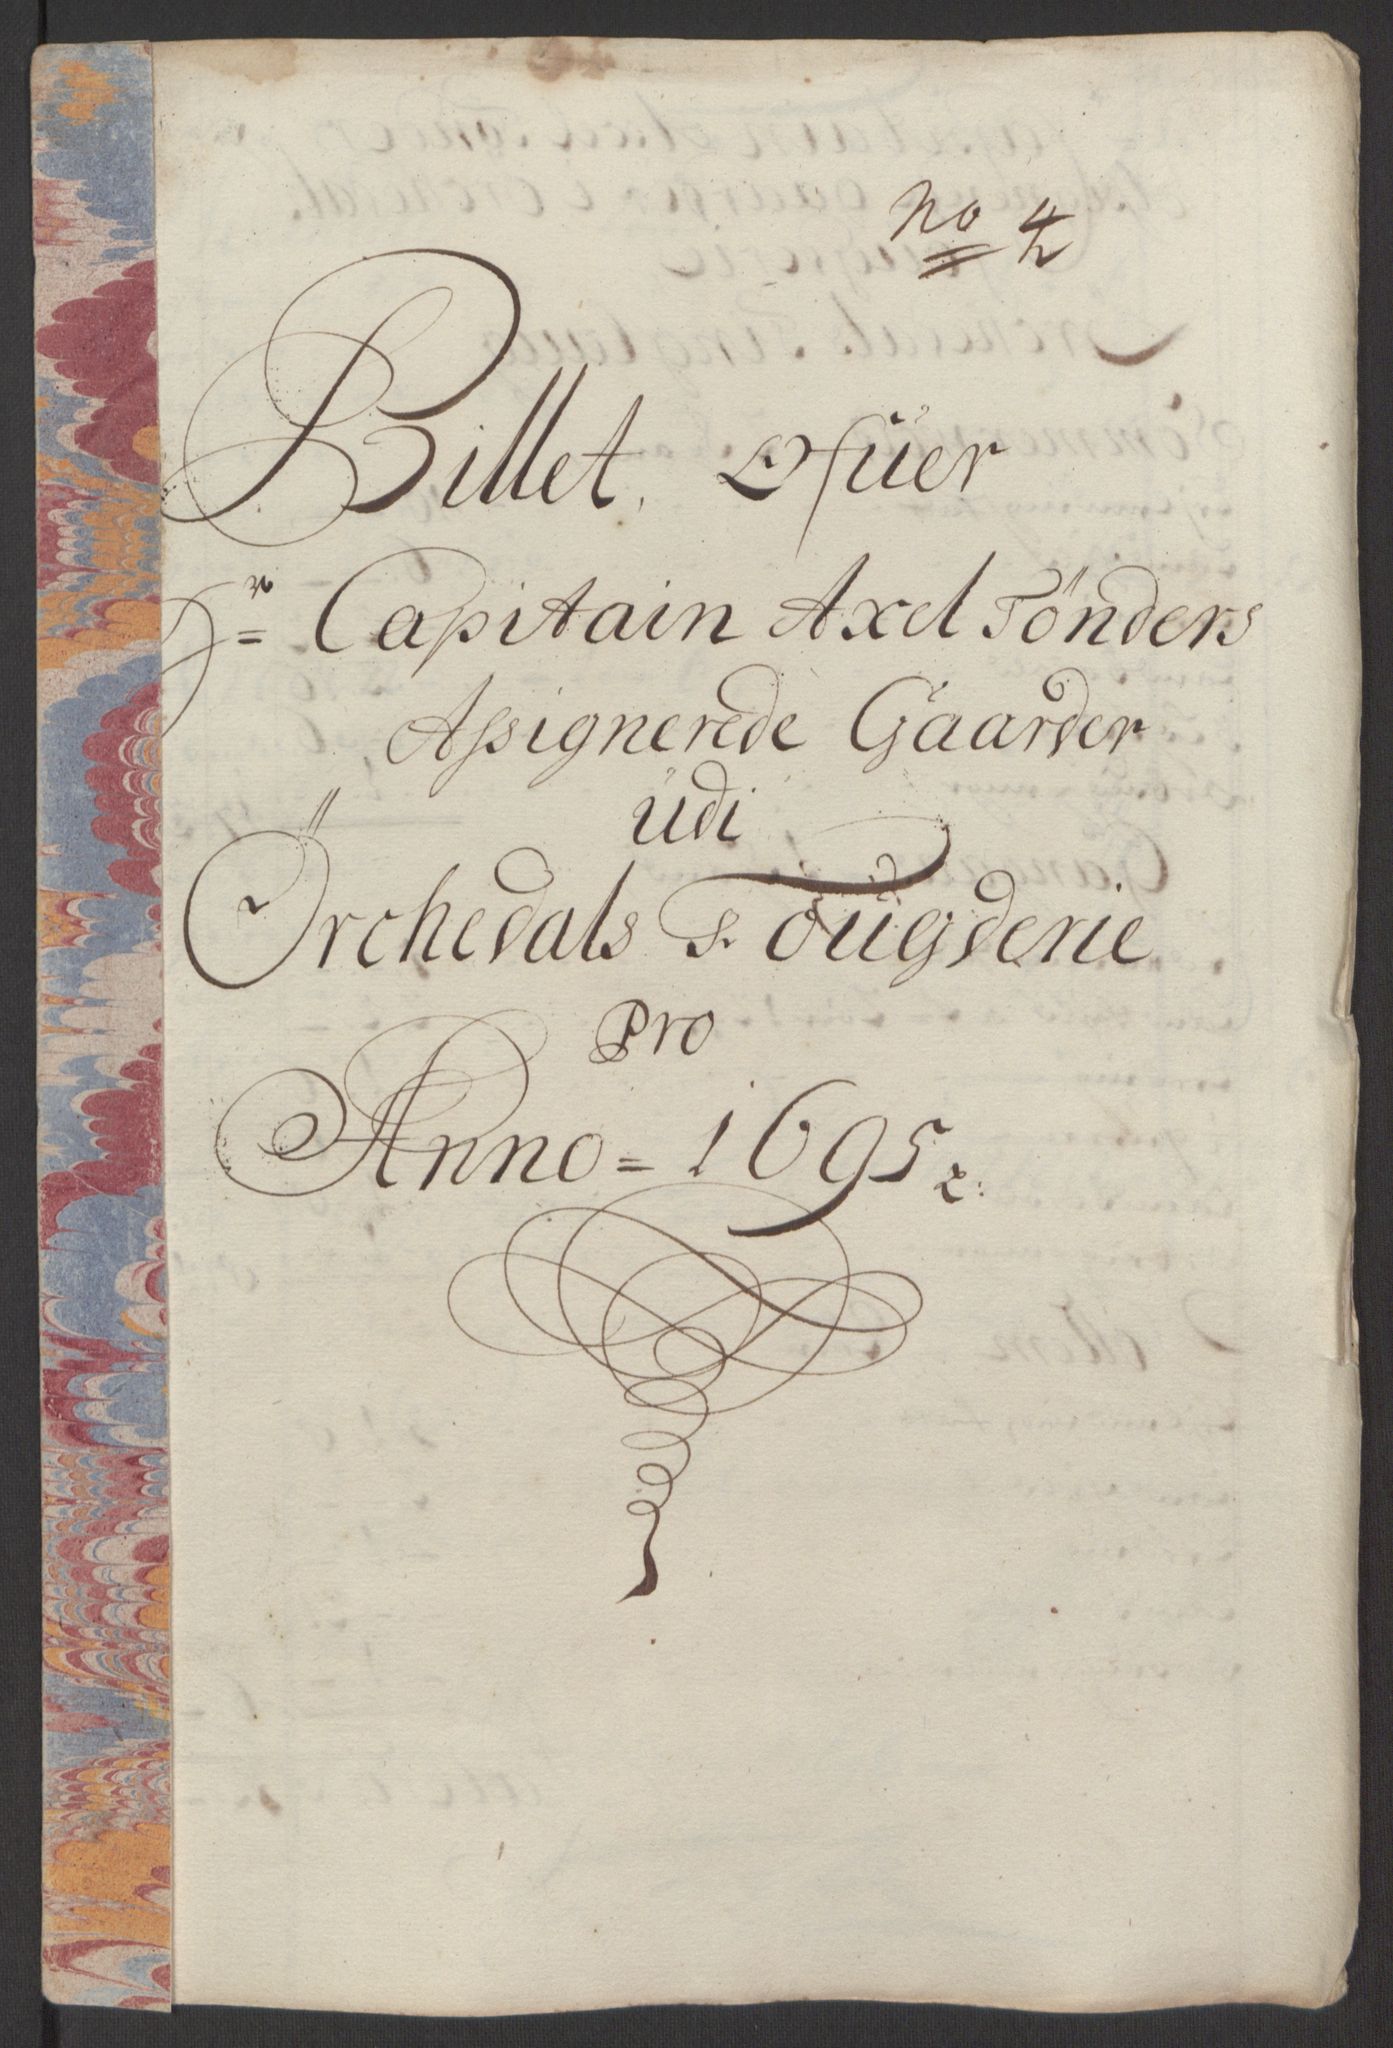 No 4
Billet, Ofuer
Hr= Capitain Axel Tönders
Assignerede Gaarder
udi
Örchedals Fougderie
Pro
Anno = 1695